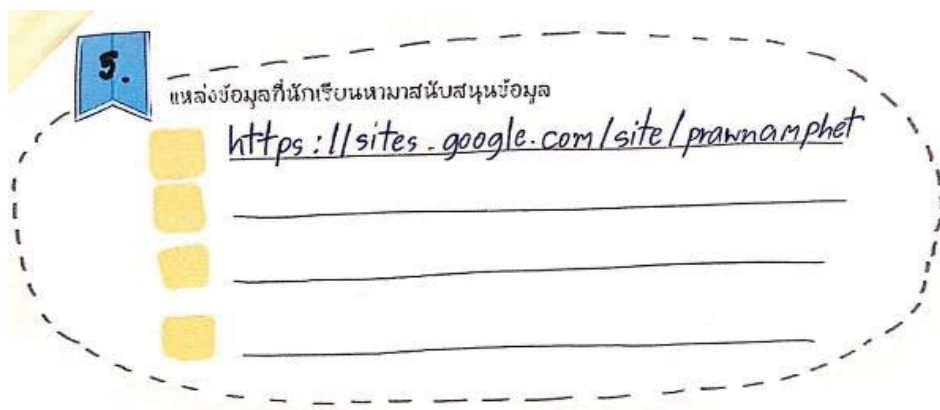 5.
แหล่งข้อมูลที่นักเรียนหามาสนับสนุนข้อมูล
https://sites.google.com/site/prawnamphet